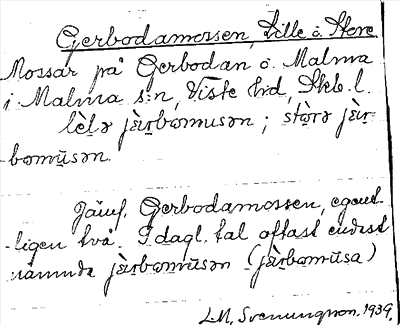 Gerbodamossen, Lille o. Store
Mossar på Gerbodan o. Malma
i Malma s:n, Viste hd, Skb. l.
lèlə jèirbωmusən; stòrə jèir-
bωmūsən.
Jämf. Gerbodamossen, egent-
ligen två. I dagl. tal oftast endast
nämnda jèirbωmūsən (jèrbωmūsa)
L.M. Svenungsson. 1939.